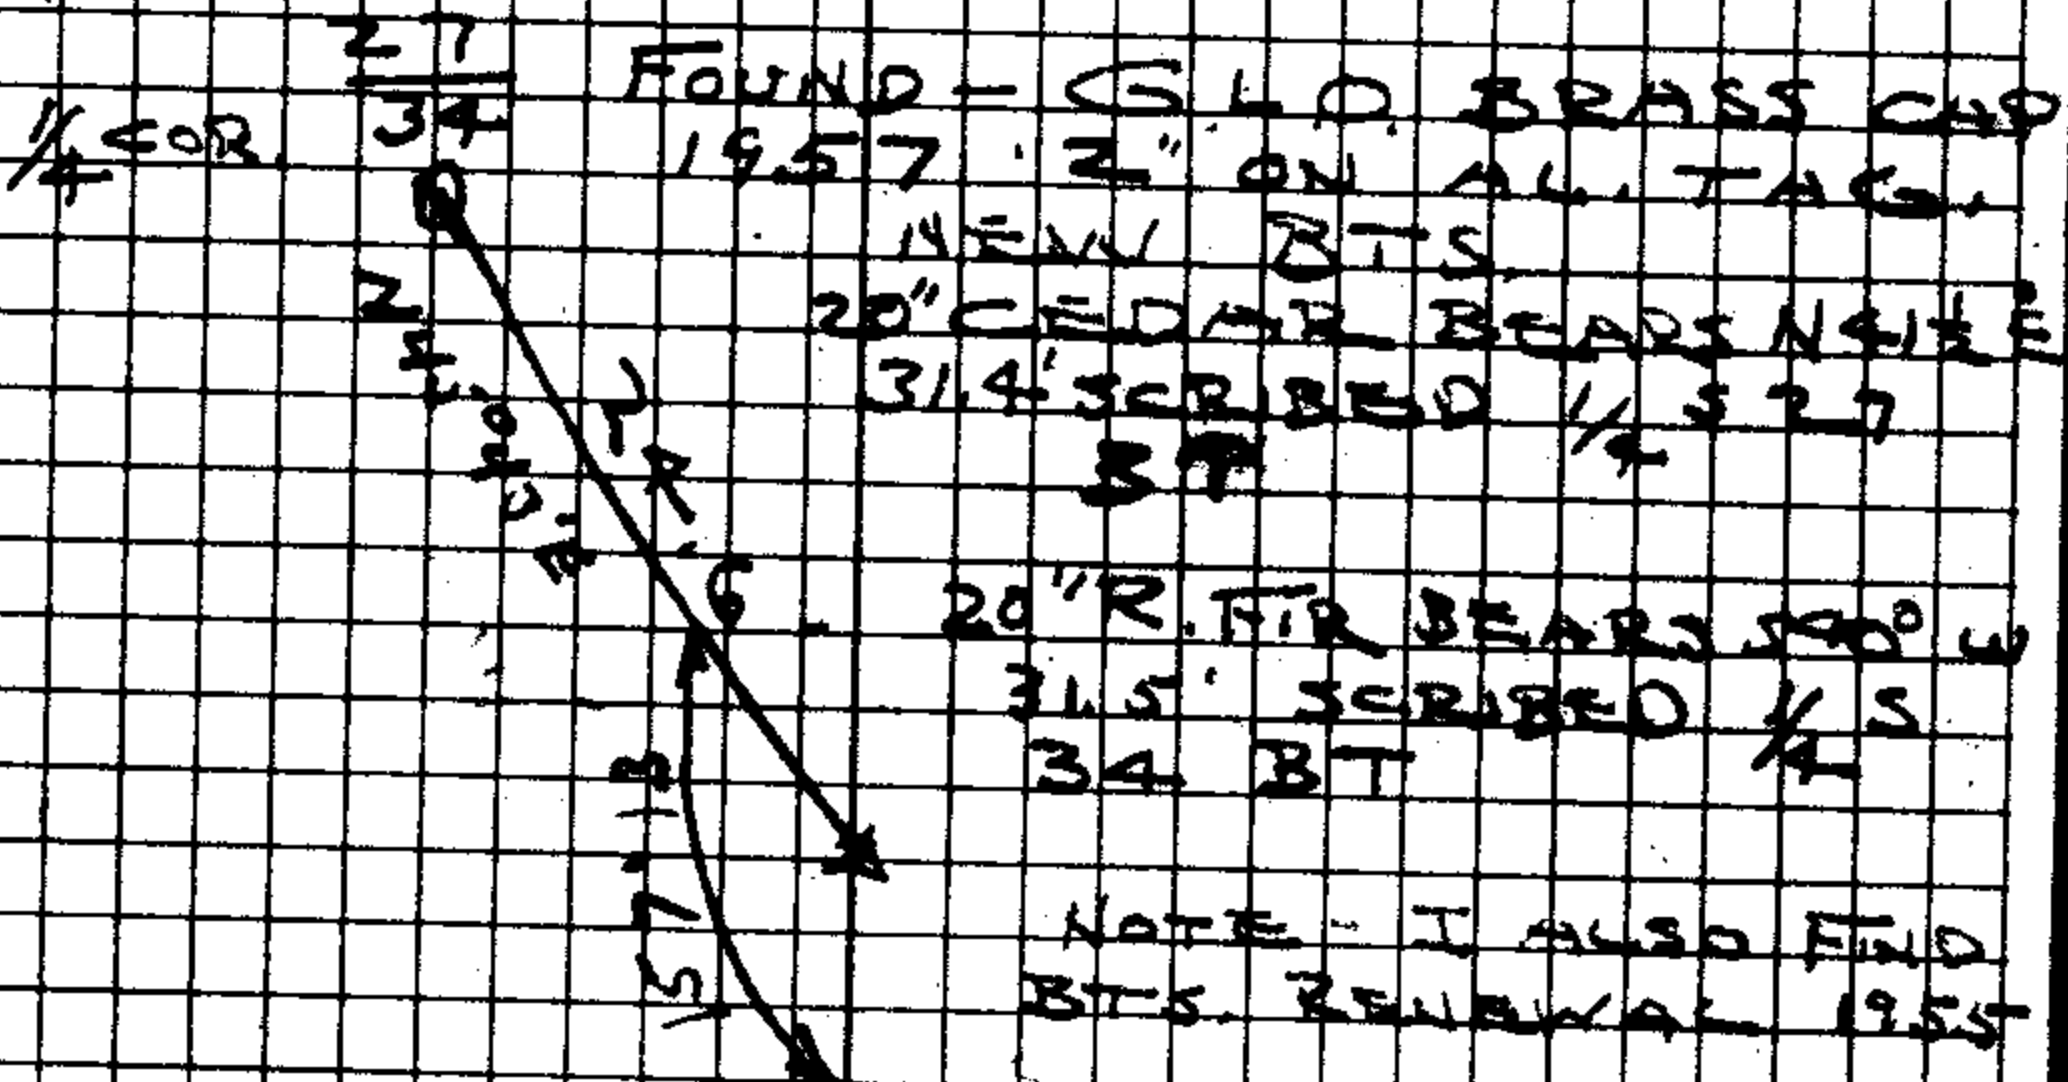 27
34
1/4 COR
FOUND - G.L.O. BRASS CAP
1957. 2" ON AL. TAG.
NEW BTS.
20" CEDAR BEARS N41½°E
31.4' SCRIBED 1/4 S 27
BT
20" R. FIR BEARS S40° W
31.5' SCRIBED 1/4 S
34 BT
NOTE - I ALSO FIND
BTS. RENEWAL 1955